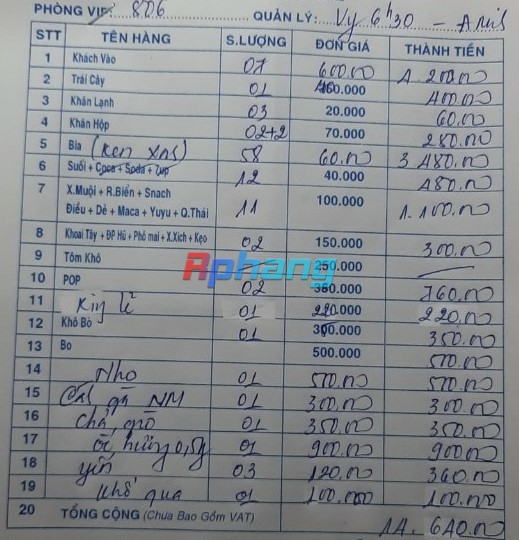 PHÒNG VIP: 806 QUẢN LÝ: Vy 6h30 - A
STT TÊN HÀNG S.LƯỢNG ĐƠN GIÁ THÀNH TIỀN
1 Khách Vào 07 600.000 4.200.00
2 Trái Cây 01 400.000 400.00
3 Khăn Lạnh 03 20.000 60.00
4 Khăn Hộp 02+2 70.000 280.00
5 Bia (Ken xns) 58 60.00 3.480.00
6 Suối + Coca + Soda + 7up 12 40.000 480.00
7 X.Muội + R.Biển + Snach
Điều + Dẻ + Maca + Yuyu + Q.Thái 11 100.000 1.100.00
8 Khoai Tây + ĐP Hũ + Phô mai + X.Xích + Kẹo 02 150.000 300.00
9 Tôm Khô 250.000
Rphang
10 POP 02 380.000 760.00
11 01 220.000 220.00
12 Khô Bò 01 350.00
13 Bo 500.000 500.00
14 Nho 01 500.00 500.00
15 gà NM 01 300.00 300.00
16 chả giò 01 350.00 350.00
17 ốc hương 0,5g 01 900.00 900.00
18 yến 03 120.00 360.00
19 khổ qua 01 100.000 100.00
20 TỔNG CỘNG (Chưa Bao Gồm VAT) 14.640.00